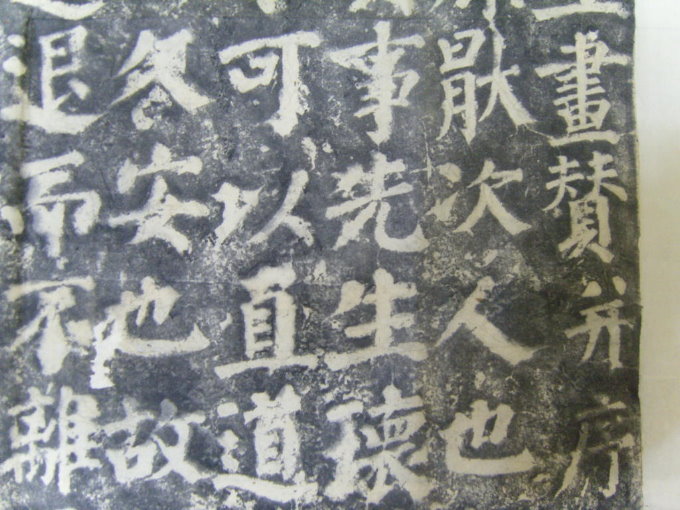 畫贊并序
猒次人也
事先生瓌
可以直道
久安也故
退而不離